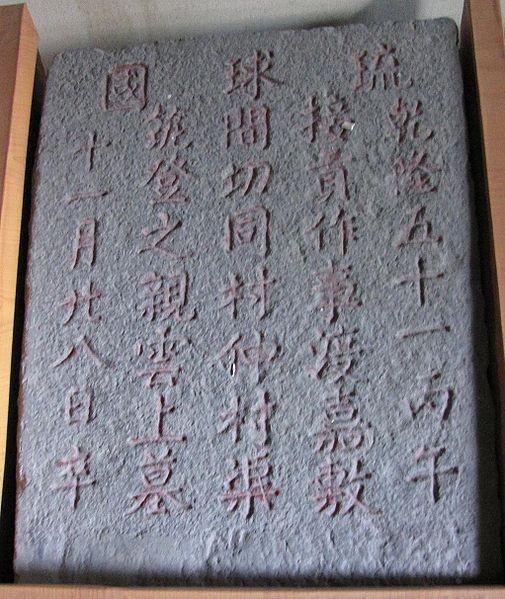 琉球國
乾隆五十一丙午
接貢作事渡嘉敷
間切同村仲村渠
筑登之親雲上墓
十一月廿八日卒